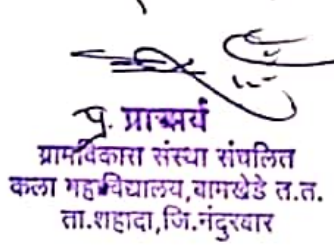 प्र. प्राचार्य
ग्रामविकास संस्था संचलित
कला महाविद्यालय, बामखेडे त.त.
ता.शहादा,जि.नंदुरबार